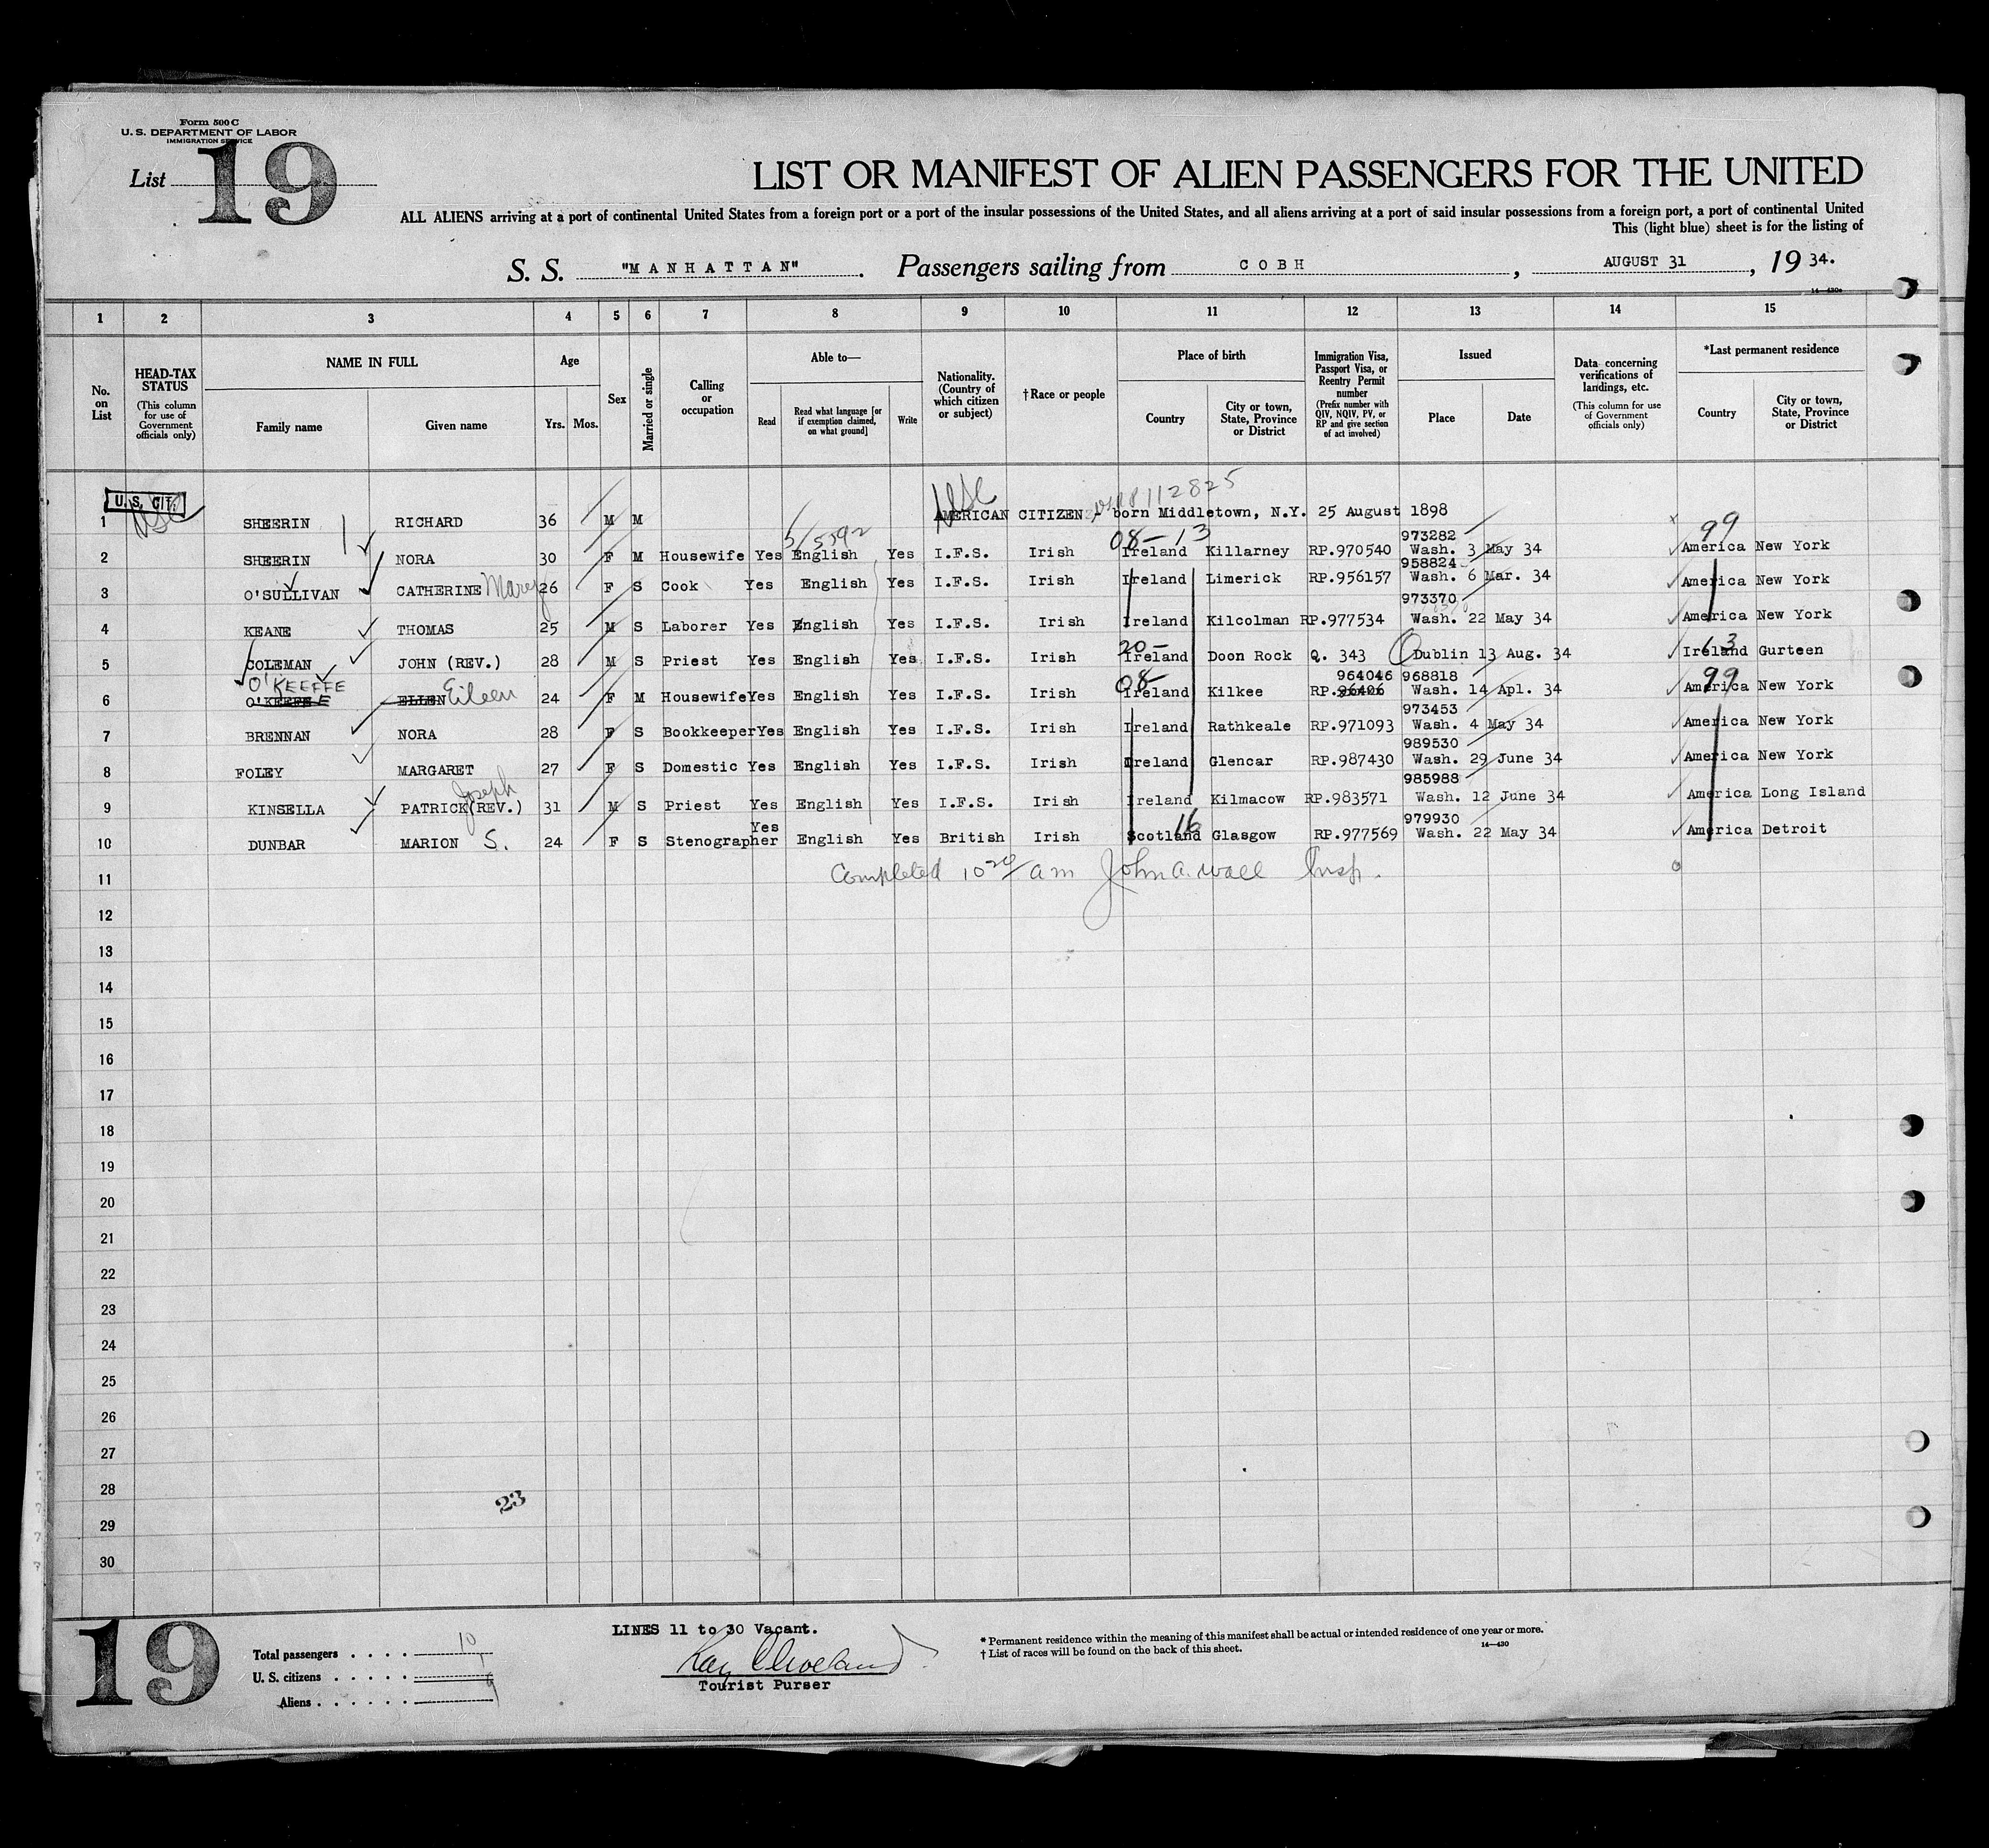 Form 500 C
U. S. DEPARTMENT OF LABOR
IMMIGRATION SERVICE
List 19
LIST OR MANIFEST OF ALIEN PASSENGERS FOR THE UNITED
ALL ALIENS arriving at a port of continental United States from a foreign port or a port of the insular possessions of the United States, and all aliens arriving at a port of said insular possessions from a foreign port, a port of continental United
This (light blue) sheet is for the listing of
S. S. "MANHATTAN". Passengers sailing from COBH, AUGUST 31, 1934.
1 2 3 4 5 6 7 8 9 10 11 12 13 14 15
No. on List
HEAD-TAX STATUS (This column for use of Government officials only)
NAME IN FULL Family name Given name
Age Yrs. Mos.
Sex
Married or single
Calling or occupation
Able to— Read Read what language [or if exemption claimed, on what ground] Write
Nationality. (Country of which citizen or subject)
†Race or people
Place of birth Country City or town, State, Province or District
Immigration Visa, Passport Visa, or Reentry Permit number (Prefix number with QIV, NQIV, PV, or RP and give section of act involved)
Issued Place Date
Data concerning verifications of landings, etc. (This column for use of Government officials only)
*Last permanent residence Country City or town, State, Province or District
U. S. CIT. USC USC 8112825
1 SHEERIN RICHARD 36 M M AMERICAN CITIZEN, born Middletown, N.Y. 25 August 1898
5/5592 08-13 973282 99
2 SHEERIN NORA 30 F M Housewife Yes English Yes I.F.S. Irish Ireland Killarney RP.970540 Wash. 3 May 34 America New York
958824
3 O'SULLIVAN CATHERINE Mary 26 F S Cook Yes English Yes I.F.S. Irish Ireland Limerick RP.956157 Wash. 6 Mar. 34 America New York
973370
4 KEANE THOMAS 25 M S Laborer Yes English Yes I.F.S. Irish Ireland Kilcolman RP.977534 Wash. 22 May 34 America New York
20- 13
5 COLEMAN JOHN (REV.) 28 M S Priest Yes English Yes I.F.S. Irish Ireland Doon Rock Q. 343 Dublin 13 Aug. 34 Ireland Gurteen
O'KEEFFE 08- 964046 968818 99
6 O'KEEFE ELLEN Eileen 24 F M Housewife Yes English Yes I.F.S. Irish Ireland Kilkee RP.96406 Wash. 14 Apl. 34 America New York
973453
7 BRENNAN NORA 28 F S Bookkeeper Yes English Yes I.F.S. Irish Ireland Rathkeale RP.971093 Wash. 4 May 34 America New York
989530
8 FOLEY MARGARET 27 F S Domestic Yes English Yes I.F.S. Irish Ireland Glencar RP.987430 Wash. 29 June 34 America New York
Joseph 985988
9 KINSELLA PATRICK (REV.) 31 M S Priest Yes English Yes I.F.S. Irish Ireland Kilmacow RP.983571 Wash. 12 June 34 America Long Island
Yes 16 979930
10 DUNBAR MARION S. 24 F S Stenographer English Yes British Irish Scotland Glasgow RP.977569 Wash. 22 May 34 America Detroit
11 Completed 10 20/ am John A. Wall Insp.
12
13
14
15
16
17
18
19
20
21
22
23
24
25
26
27
28
23
29
30
19
LINES 11 to 30 Vacant.
Total passengers . . . . 10
U. S. citizens . . . . . 1
Aliens . . . . . . 9
Ray Cleveland
Tourist Purser
* Permanent residence within the meaning of this manifest shall be actual or intended residence of one year or more.
† List of races will be found on the back of this sheet.
14—430